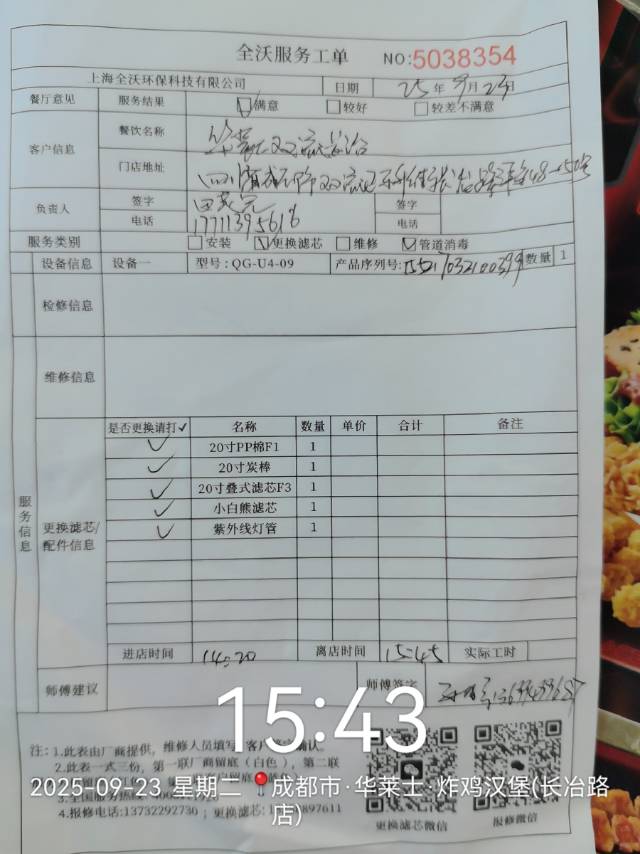 全沃服务工单 NO:5038354
上海全沃环保科技有限公司 日期 25年9月23日
餐厅意见 服务结果 ☑满意 □较好 □较差不满意
客户信息 餐饮名称 华莱士双流长冶
门店地址 四川省成都市双流区
负责人 签字 签字
电话 17711395616 电话
服务类别 □安装 ☑更换滤芯 □维修 ☑管道消毒
设备信息 设备一 型号:QG-U4-09 产品序列号: 数量 1
检修信息
维修信息
服务信息
更换滤芯/配件信息
是否更换请打✓ 名称 数量 单价 合计 备注
✓ 20寸PP棉F1 1
✓ 20寸炭棒 1
✓ 20寸叠式滤芯F3 1
✓ 小白熊滤芯 1
✓ 紫外线灯管 1
进店时间 14:20 离店时间 15:45 实际工时
师傅建议 师傅签字
15:43
注:1.此表由厂商提供,维修人员填写,客户 确认。
2.此表一式三份,第一联厂商留底(白色),第二联
2025-09-23 星期二 成都市·华莱士·炸鸡汉堡(长冶路店)
3.全国服务热线
4.报修电话:13732292730 ;更换滤芯: 0897611
更换滤芯微信 报修微信